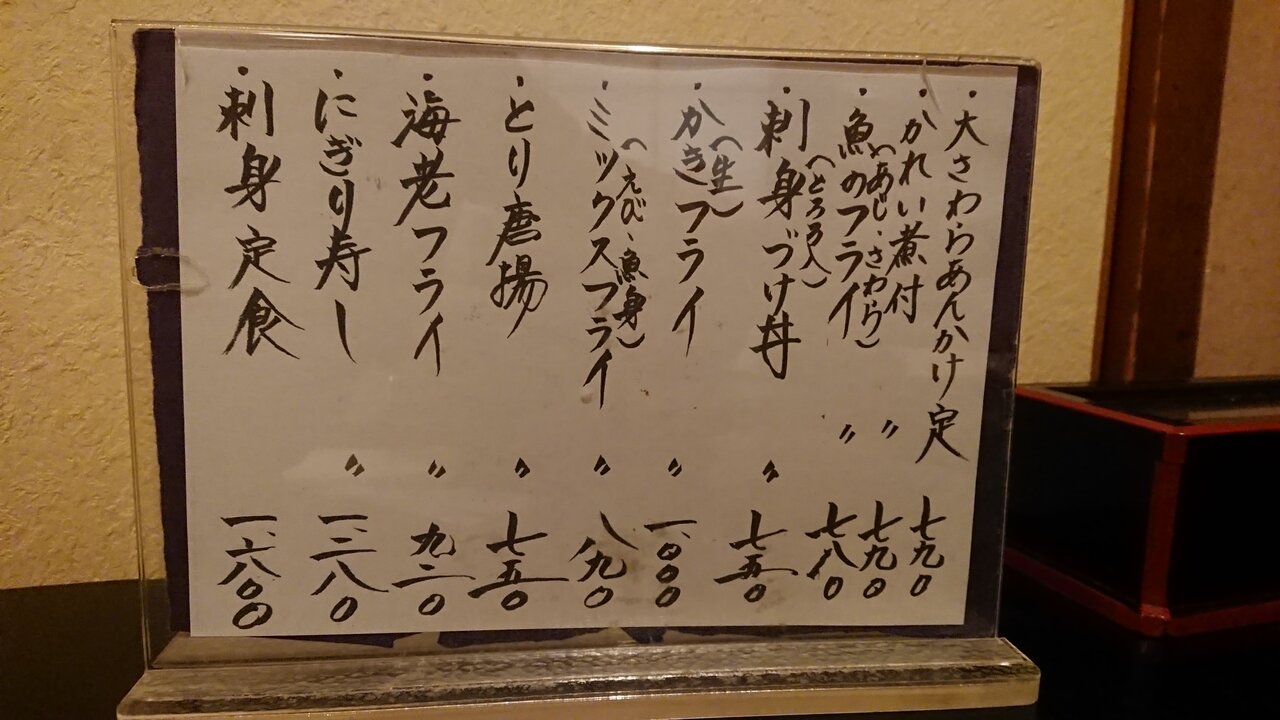 ・大さわらあんかけ定 七九〇
・かれい煮付 〃 七九〇
・魚のフライ 〃 七八〇
(あじ、さわら)
・刺身づけ丼 〃 七五〇
(とろろ入)
・かきフライ 〃 一、〇〇〇
(生)
・ミックスフライ 〃 八九〇
(えび、魚身)
・とり唐揚 〃 七五〇
・海老フライ 〃 九二〇
・にぎり寿し 〃 一、二八〇
・刺身定食 一、六〇〇